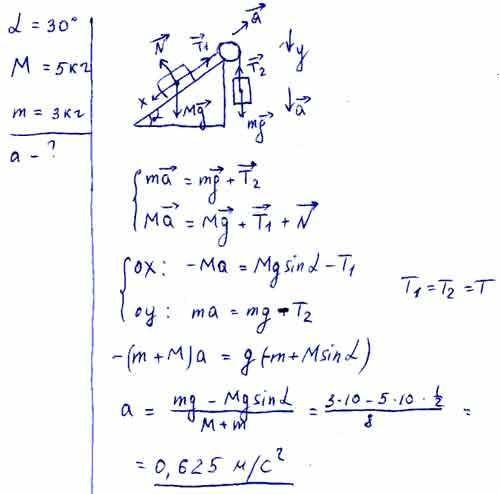 α = 30°
M = 5кг
m = 3кг
a - ?
N⃗ T⃗₁ a⃗
↓y
T⃗₂
x
α Mg⃗ mg⃗ ↓a⃗
{ma⃗ = mg⃗ + T⃗₂
{Ma⃗ = Mg⃗ + T⃗₁ + N⃗
{ox: -Ma = Mgsinα - T₁
T₁ = T₂ = T
{oy: ma = mg - T₂
-(m + M)a = g(-m + Msinα)
a = (mg - Mgsinα)/(M + m) = (3·10 - 5·10·1/2)/8 =
= 0,625 м/с²